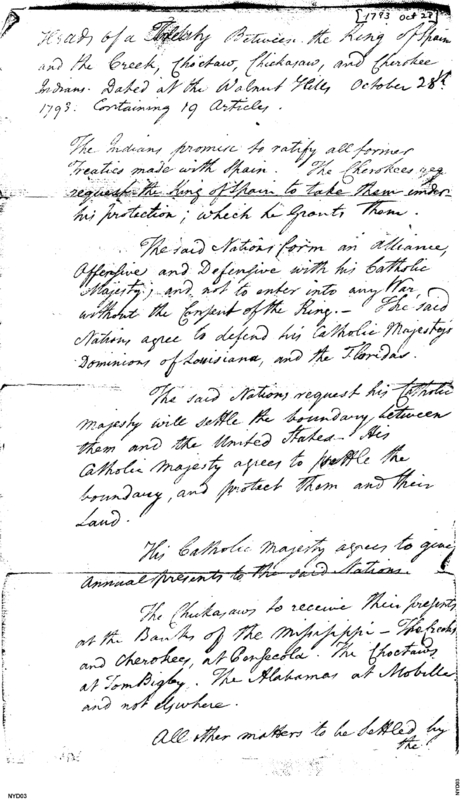 [1793 Oct 28]
Heads of a Treaty Between the King of Spain
and the Creek, Choctaw, Chickasaw, and Cherokee
Indians. Dated at the Walnut Hills October 28th
1793. Containing 19 Articles.
The Indians promise to ratify all former
Treaties made with Spain. The Cherokees
request the King of Spain to take them under
his protection; which he Grants them.
The said Nations form an alliance,
Offensive and Defensive with his Catholic
Majesty; and not to enter into any War
without the Consent of the King. — The said
Nations agree to defend his Catholic Majesty's
Dominions of Louisiana, and the Floridas.
The said Nations request his Catholic
Majesty will settle the boundary between
them and the United States — His
Catholic Majesty agrees to settle the
boundary, and protect them and their
Land.
His Catholic Majesty agrees to give
annual presents to the said Nations.
The Chickasaws to receive their presents
at the Banks of the Missisippi — The Creeks
and Cherokees, at Pensecola. The Choctaws
at TomBigby. The Alabamas at Mobille
and not elswhere.
All other matters to be settled by
the
NYD03
NYD03